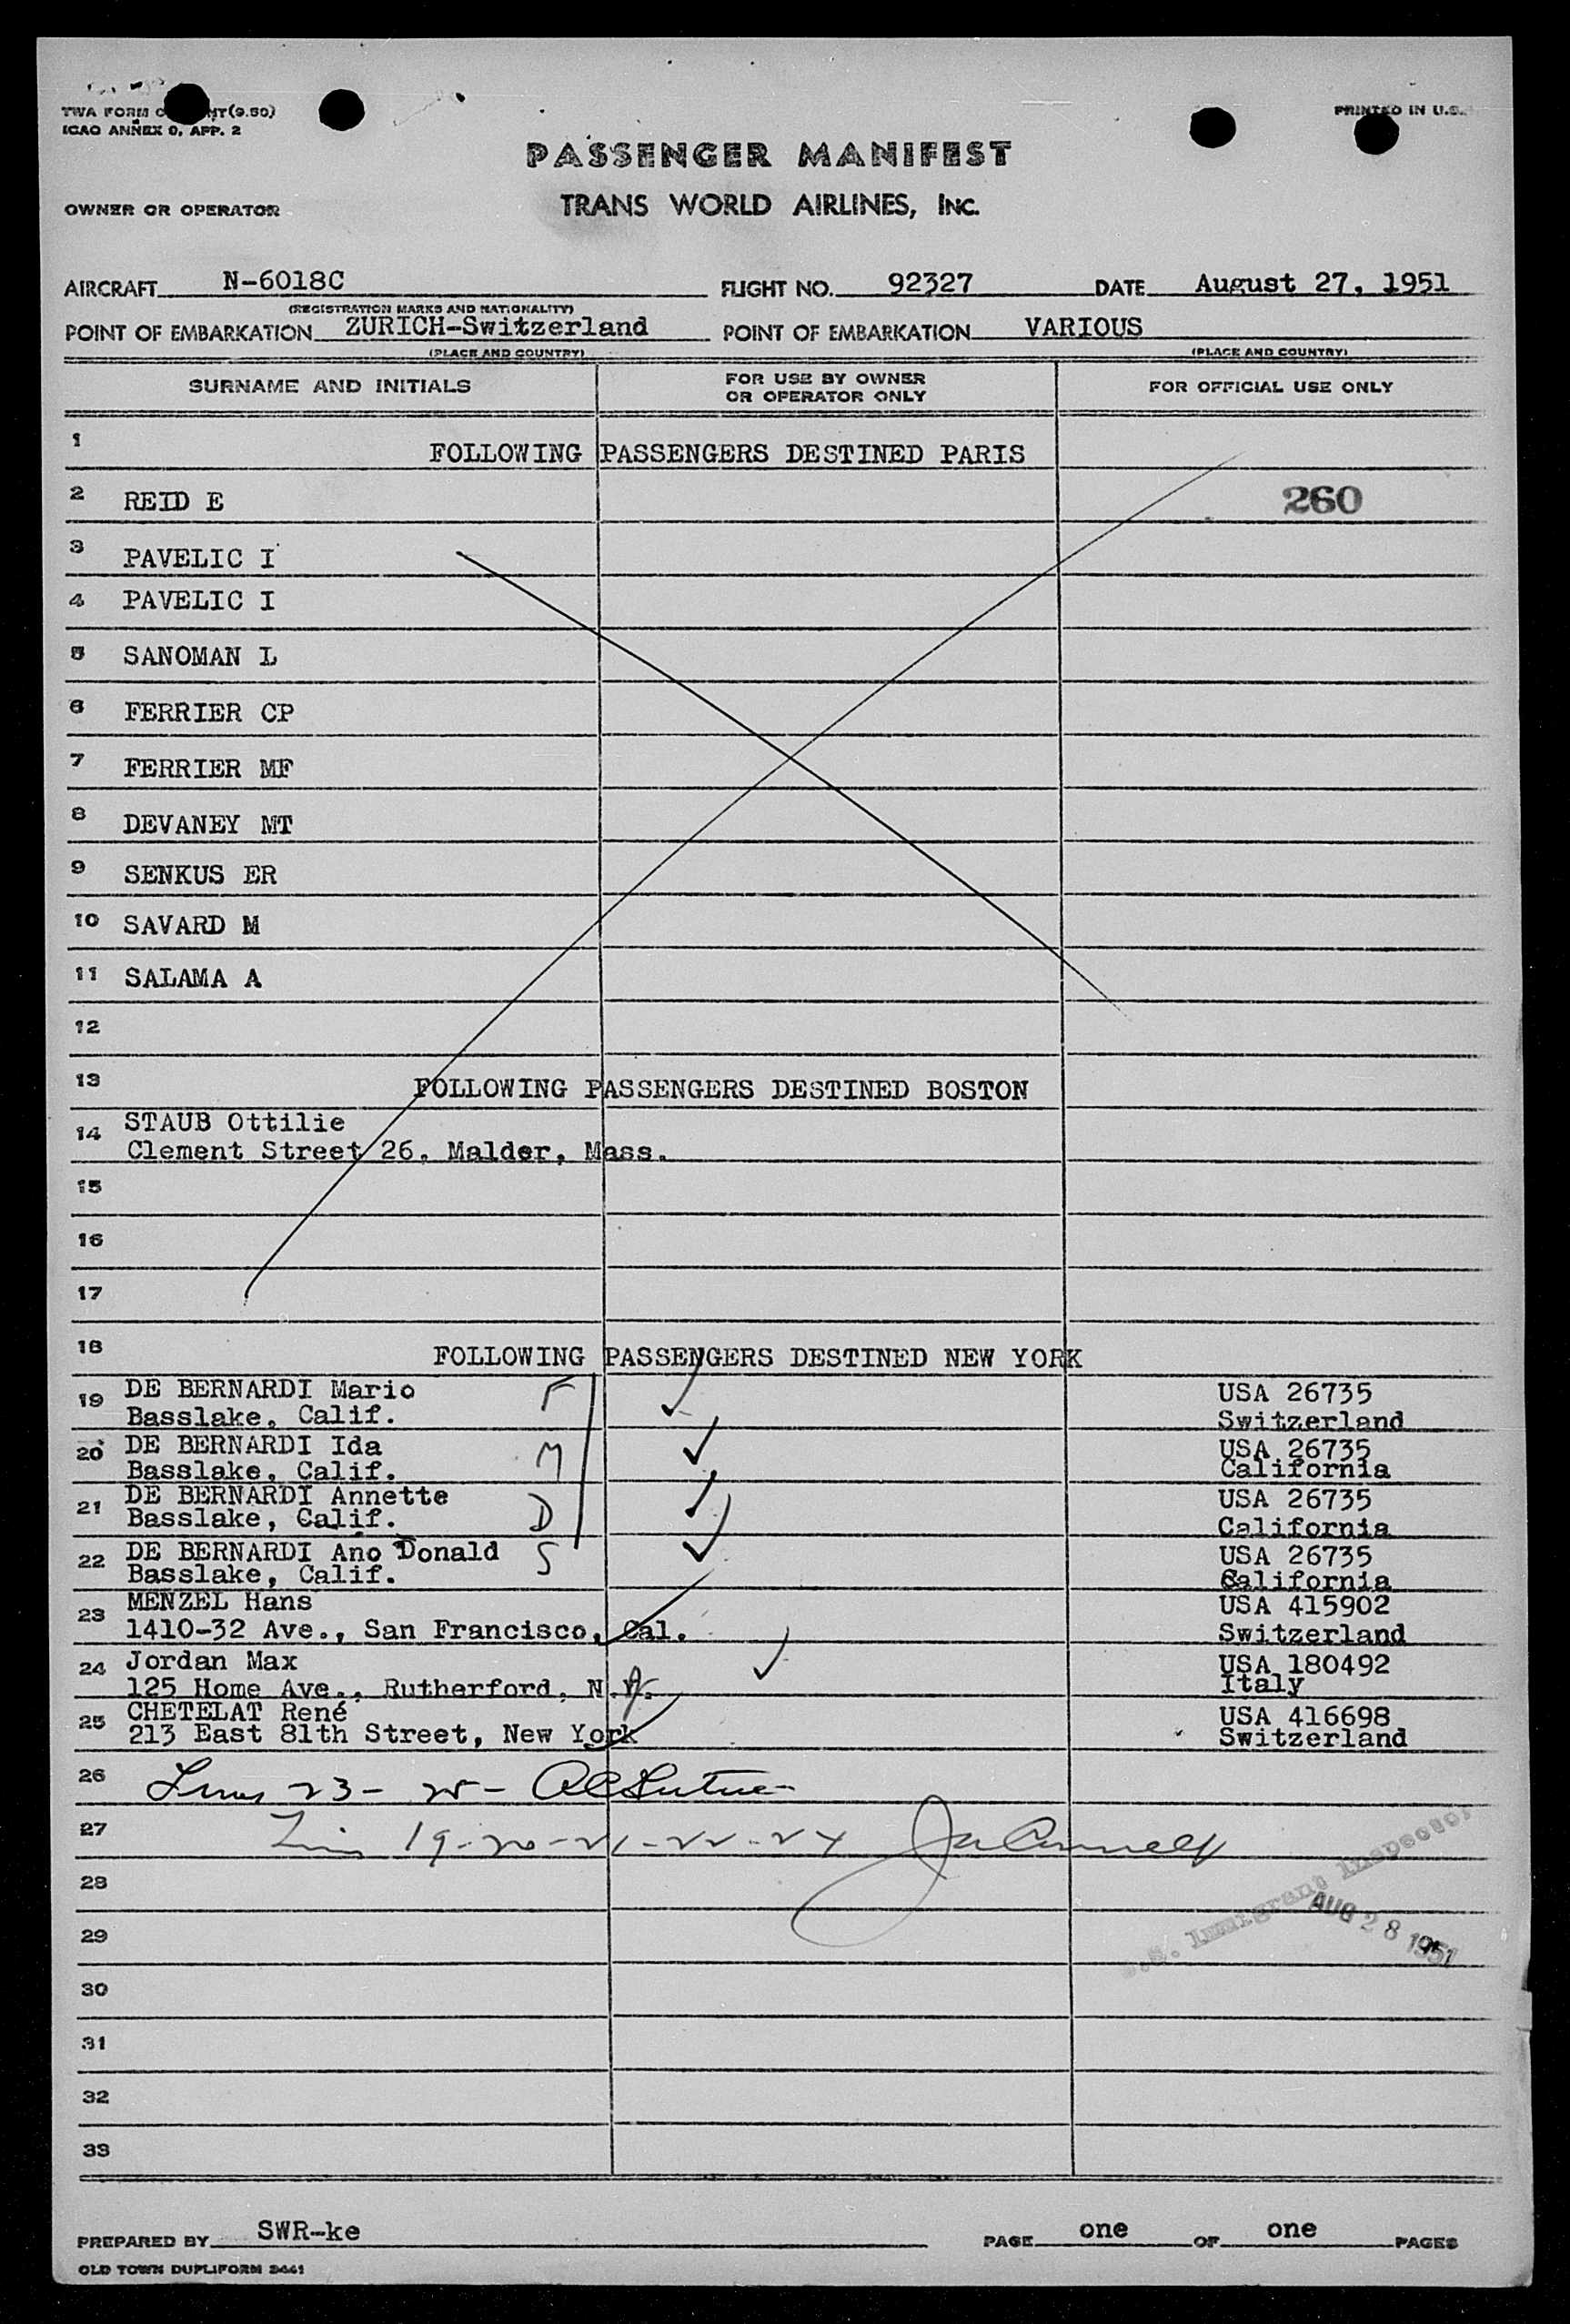 TWA FORM
(9.50)
PRINTED IN U.S.
ICAO ANNEX 9, APP. 2
PASSENGER MANIFEST
OWNER OR OPERATOR
TRANS WORLD AIRLINES, INC.
AIRCRAFT N-6018C FLIGHT NO. 92327 DATE August 27, 1951
(REGISTRATION MARKS AND NATIONALITY)
POINT OF EMBARKATION ZURICH-Switzerland POINT OF EMBARKATION VARIOUS
(PLACE AND COUNTRY) (PLACE AND COUNTRY)
SURNAME AND INITIALS FOR USE BY OWNER OR OPERATOR ONLY FOR OFFICIAL USE ONLY
1 FOLLOWING PASSENGERS DESTINED PARIS
2 REID E 260
3 PAVELIC I
4 PAVELIC I
5 SANOMAN L
6 FERRIER CP
7 FERRIER MF
8 DEVANEY MT
9 SENKUS ER
10 SAVARD M
11 SALAMA A
12
13 FOLLOWING PASSENGERS DESTINED BOSTON
14 STAUB Ottilie
Clement Street 26, Malder, Mass.
15
16
17
18 FOLLOWING PASSENGERS DESTINED NEW YORK
19 DE BERNARDI Mario F ✓ USA 26735
Basslake, Calif. Switzerland
20 DE BERNARDI Ida M ✓ USA 26735
Basslake, Calif. California
21 DE BERNARDI Annette D ✓ USA 26735
Basslake, Calif. California
22 DE BERNARDI Ano Donald S ✓ USA 26735
Basslake, Calif. California
23 MENZEL Hans USA 415902
1410-32 Ave., San Francisco, Cal. Switzerland
24 Jordan Max ✓ USA 180492
125 Home Ave., Rutherford, N. Italy
25 CHETELAT René USA 416698
213 East 81th Street, New York Switzerland
26 Lines 23 - 25 -
27 Lines 19-20-21-22-24
28
U.S. Immigrant Inspector
AUG 28 1951
29
30
31
32
33
PREPARED BY SWR-ke PAGE one OF one PAGES
OLD TOWN DUPLIFORM 2441